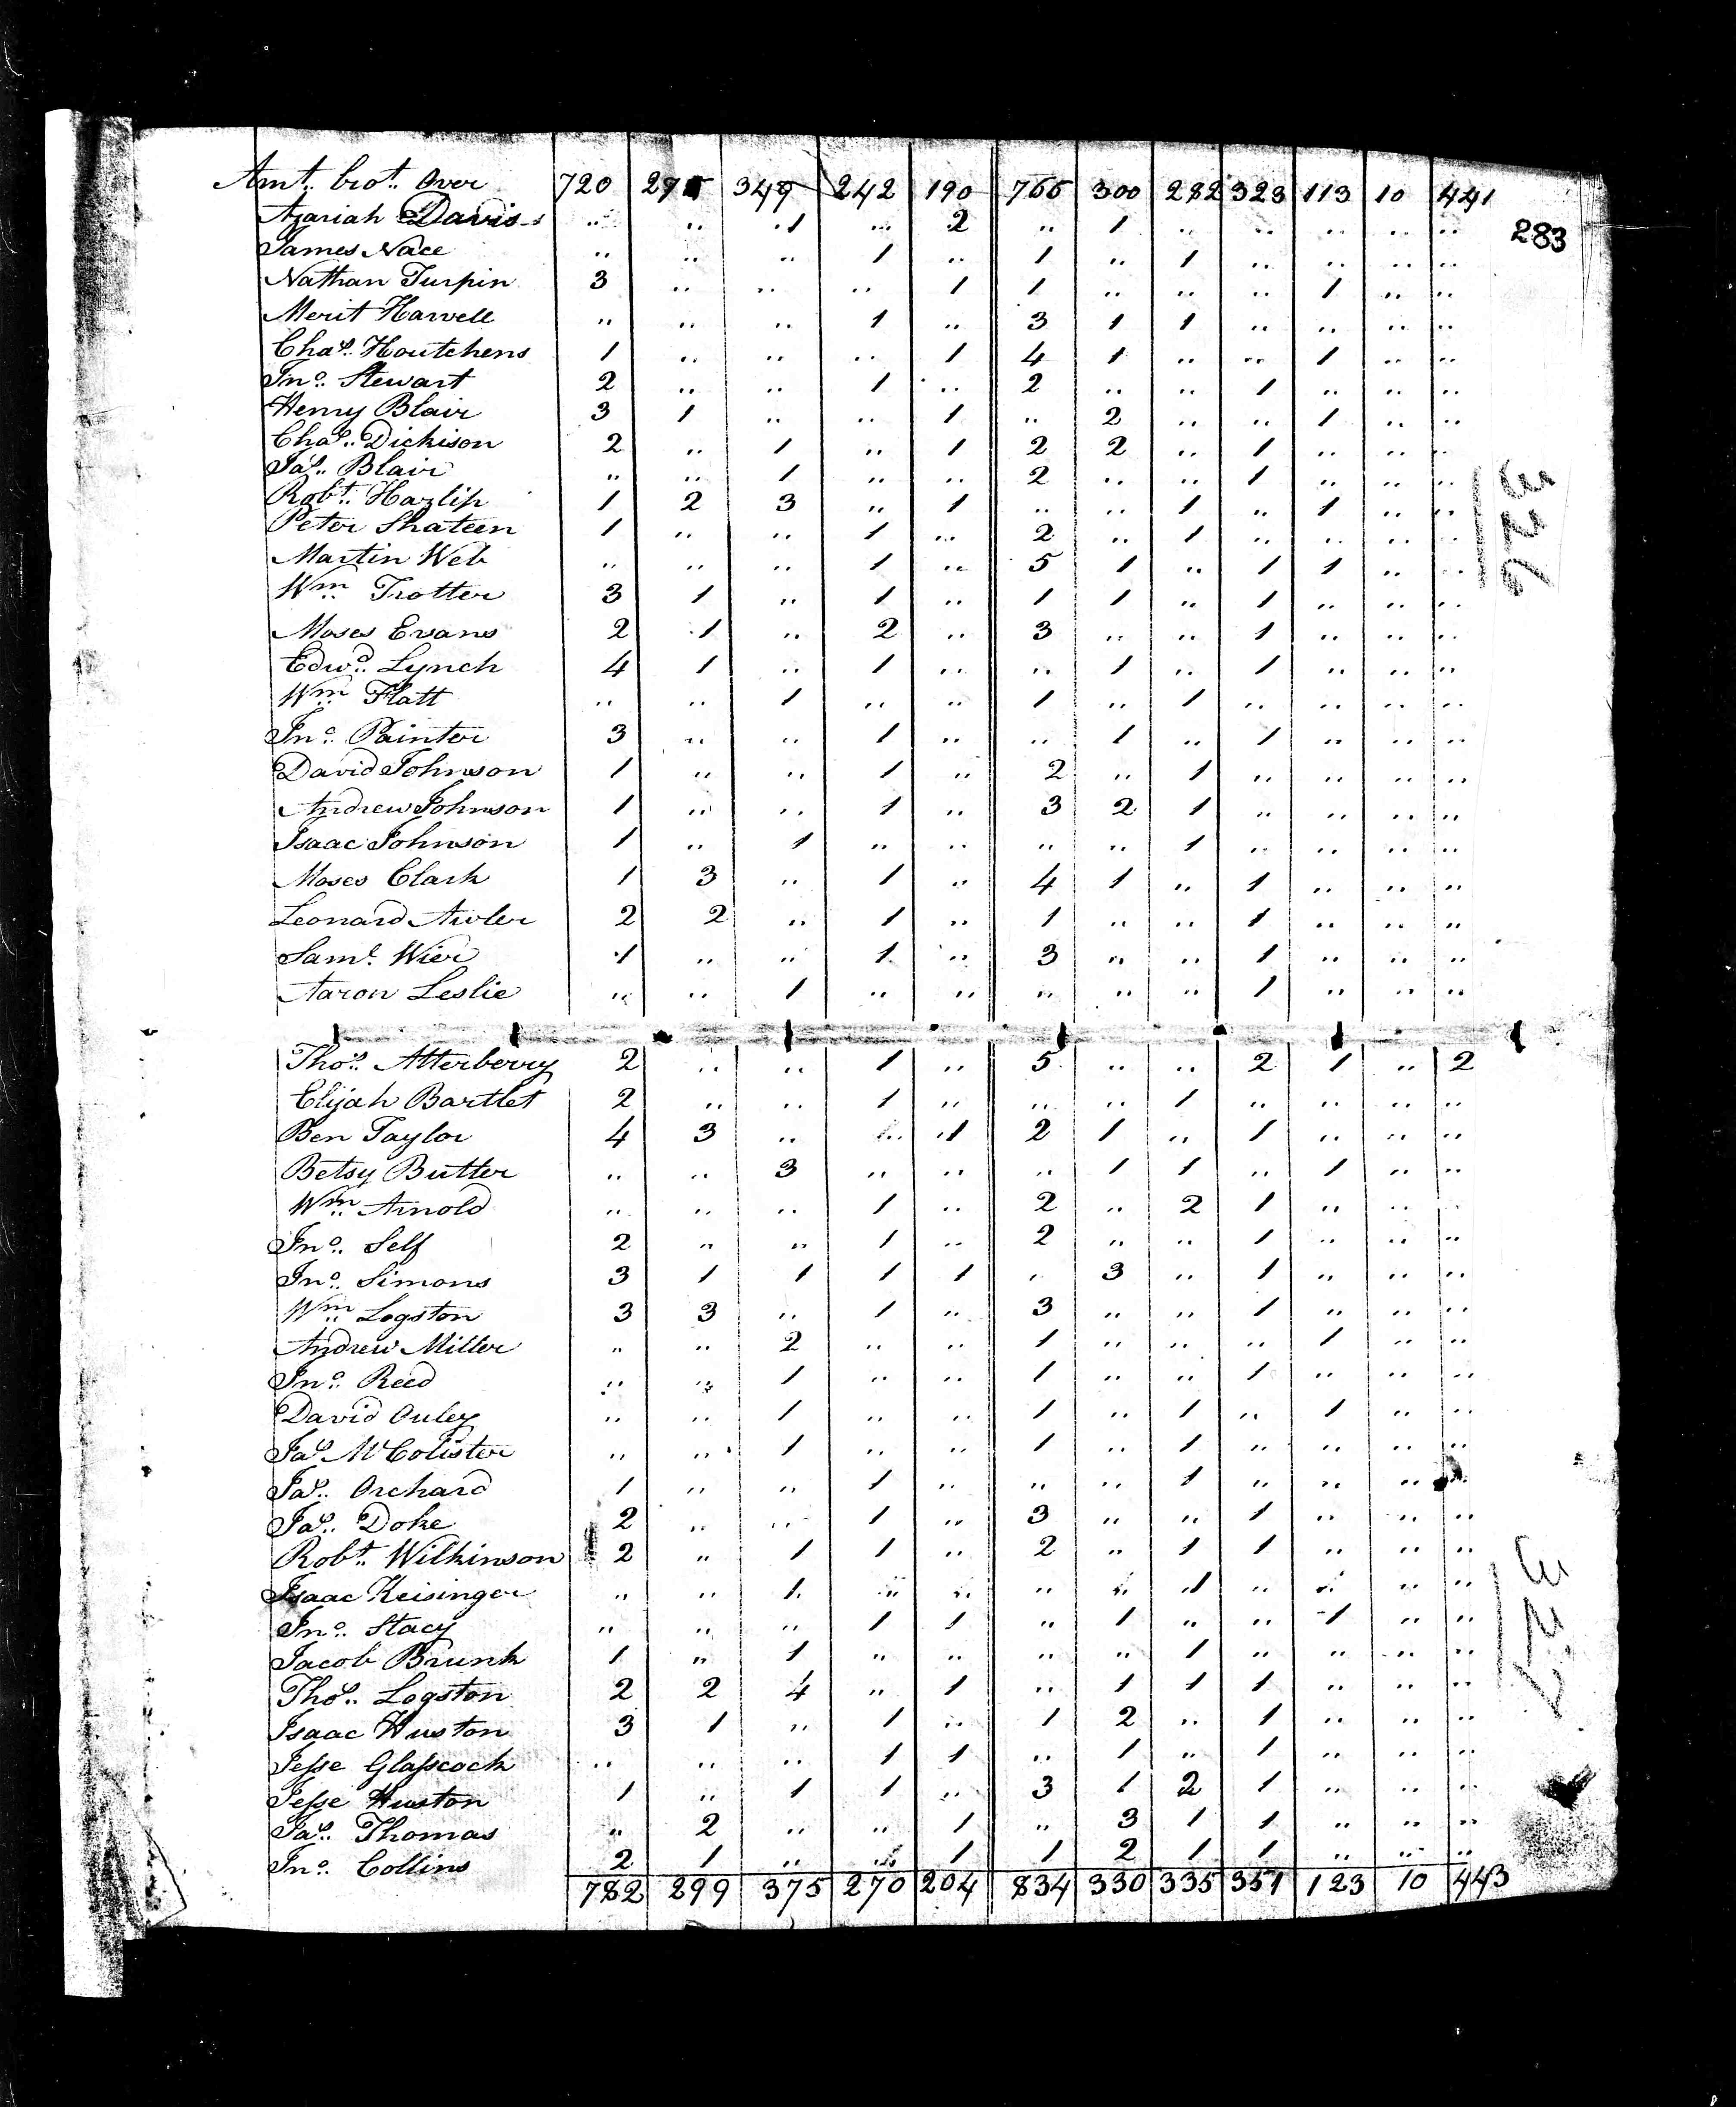 Amt. brot. Over 720 27 349 242 190 765 300 282 323 113 10 441
283
Azariah Davis .. .. 1 .. 2 .. 1 .. .. .. .. ..
James Nace .. .. .. 1 .. 1 .. 1 .. .. .. ..
Nathan Turpin 3 .. .. .. 1 1 .. .. .. 1 .. ..
Merit Harvell .. .. .. 1 .. 3 1 1 .. .. .. ..
Chas. Houtchens 1 .. .. .. 1 4 1 .. .. 1 .. ..
Jno. Stewart 2 .. .. 1 .. 2 .. .. 1 .. .. ..
Henry Blair 3 1 .. .. 1 .. 2 .. .. 1 .. ..
Chas. Dickison 2 .. 1 .. 1 2 2 .. 1 .. .. ..
Jas. Blair .. .. 1 .. .. 2 .. .. 1 .. .. ..
Robt. Hazlip 1 2 3 .. 1 .. .. 1 .. 1 .. ..
Peter Shateen 1 .. .. 1 .. 2 .. 1 .. .. .. ..
Martin Web .. .. .. 1 .. 5 1 .. 1 1 .. ..
Wm. Trotter 3 1 .. 1 .. 1 1 .. 1 .. .. ..
Moses Evans 2 1 .. 2 .. 3 .. .. 1 .. .. ..
Edwd. Lynch 4 1 .. 1 .. .. 1 .. 1 .. .. ..
Wm. Flatt .. .. 1 .. .. 1 .. 1 .. .. .. ..
Jno. Painter 3 .. .. 1 .. .. 1 .. 1 .. .. ..
David Johnson 1 .. .. 1 .. 2 .. 1 .. .. .. ..
Andrew Johnson 1 .. .. 1 .. 3 2 1 .. .. .. ..
Isaac Johnson 1 .. 1 .. .. .. .. 1 .. .. .. ..
Moses Clark 1 3 .. 1 .. 4 1 .. 1 .. .. ..
Leonard 2 2 .. 1 .. 1 .. .. 1 .. .. ..
Saml. Wier 1 .. .. 1 .. 3 .. .. 1 .. .. ..
Aaron Leslie .. .. 1 .. .. .. .. .. 1 .. .. ..
Thos. Atterberry 2 .. .. 1 .. 5 .. .. 2 1 .. 2
Elijah Bartlet 2 .. .. 1 .. .. .. 1 .. .. .. ..
Ben Taylor 4 3 .. .. 1 2 1 .. 1 .. .. ..
Betsy Butler .. .. 3 .. .. .. 1 1 .. 1 .. ..
Wm. Arnold .. .. .. 1 .. 2 .. 2 1 .. .. ..
Jno. Self 2 .. .. 1 .. 2 .. .. 1 .. .. ..
Jno. Simons 3 1 1 1 1 .. 3 .. 1 .. .. ..
Wm. Logston 3 3 .. 1 .. 3 .. .. 1 .. .. ..
Andrew Miller .. .. 2 .. .. 1 .. .. .. 1 .. ..
Jno. Reed .. .. 1 .. .. 1 .. .. 1 .. .. ..
David Ouley .. .. 1 .. .. 1 .. 1 .. 1 .. ..
Jas. McColister .. .. 1 .. .. 1 .. 1 .. .. .. ..
Jas. Orchard 1 .. .. 1 .. .. .. 1 .. .. .. ..
Jas. Doke 2 .. .. 1 .. 3 .. .. 1 .. .. ..
Robt. Wilkinson 2 .. 1 1 .. 2 .. 1 1 .. .. ..
Isaac Keisinger .. .. 1 .. .. .. .. 1 .. .. .. ..
Jno. Stacy .. .. .. 1 1 .. 1 .. .. 1 .. ..
Jacob Brunk 1 .. 1 .. .. .. .. 1 .. .. .. ..
Thos. Logston 2 2 4 .. 1 .. 1 1 1 .. .. ..
Isaac Huston 3 1 .. 1 .. 1 2 .. 1 .. .. ..
Jesse Glasscock .. .. .. 1 1 .. 1 .. 1 .. .. ..
Jesse Huston 1 .. 1 1 .. 3 1 2 1 .. .. ..
Jas. Thomas .. 2 .. .. 1 .. 3 1 1 .. .. ..
Jno. Collins 2 1 .. .. 1 1 2 1 1 .. .. ..
782 299 375 270 204 834 330 335 351 123 10 443
326
327